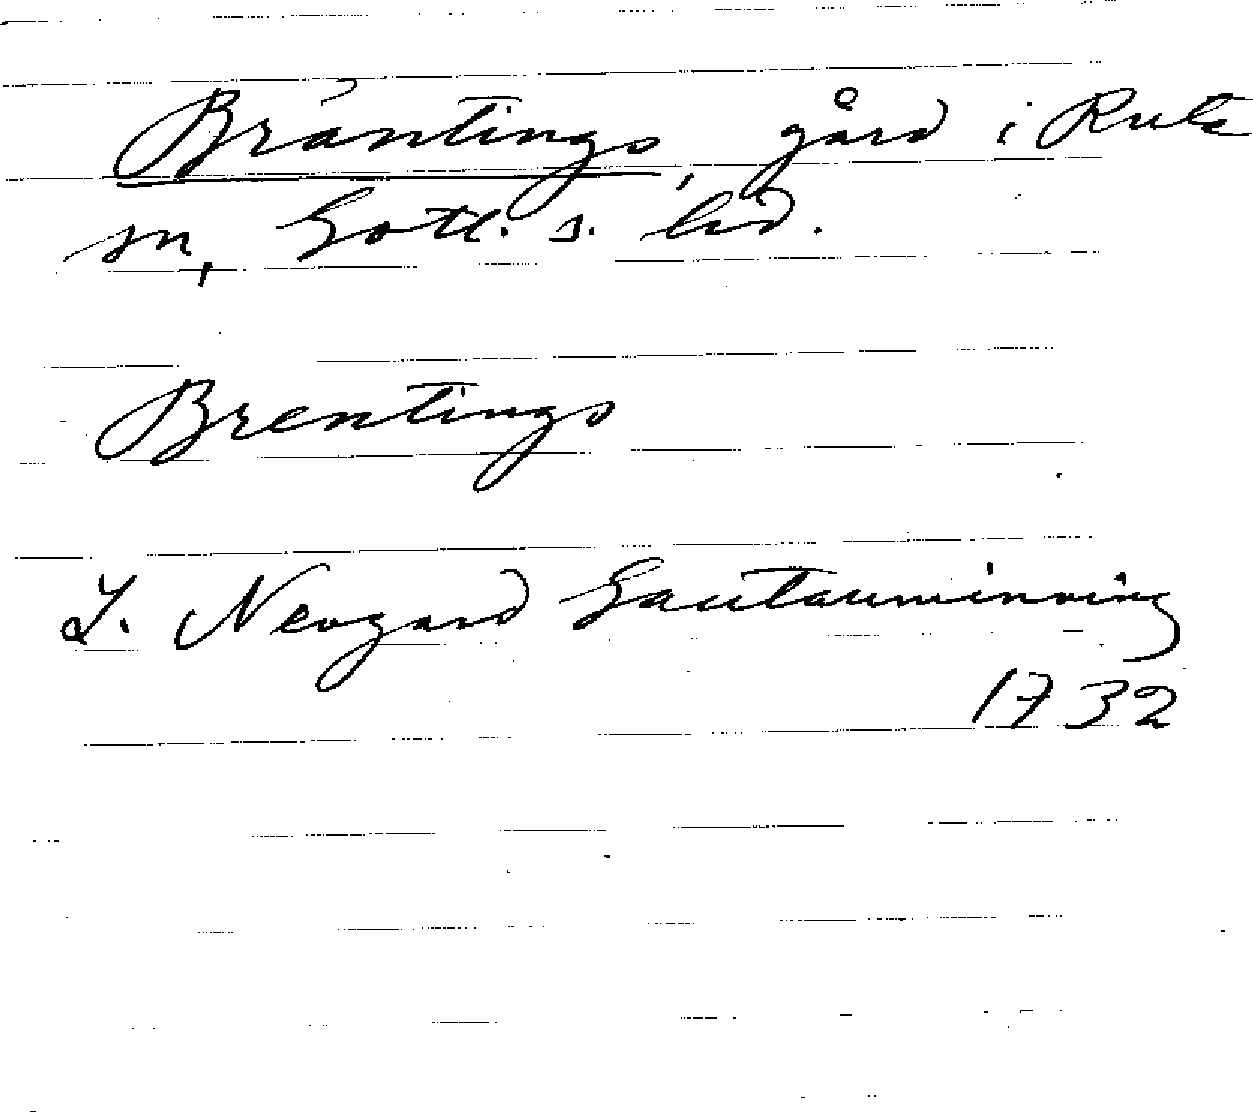 Bräntings, gård i Rute
sn, Gotl. s. hd.
Brentings
L. Neogard Gautauminning
1732